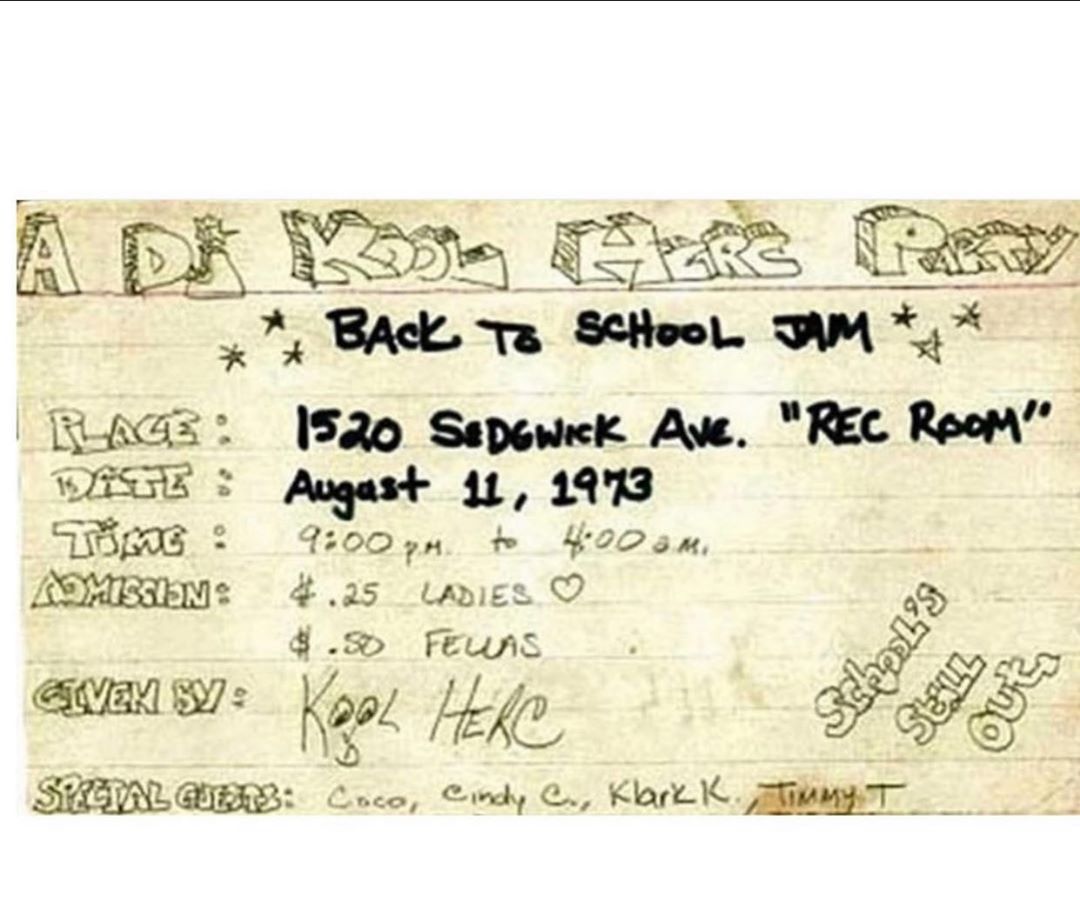 A DJ KOOL HERC PARTY
BACK TO SCHOOL JAM
PLACE: 1520 SEDGWICK AVE. "REC ROOM"
DATE: August 11, 1973
TIME: 9:00 pm. to 4:00 am.
ADMISSION: $.25 LADIES ♡
$.50 FELLAS
GIVEN BY: KOOL HERC
SPECIAL GUESTS: Coco, Cindy C., Klark K., TIMMY T
School's
Still
Out